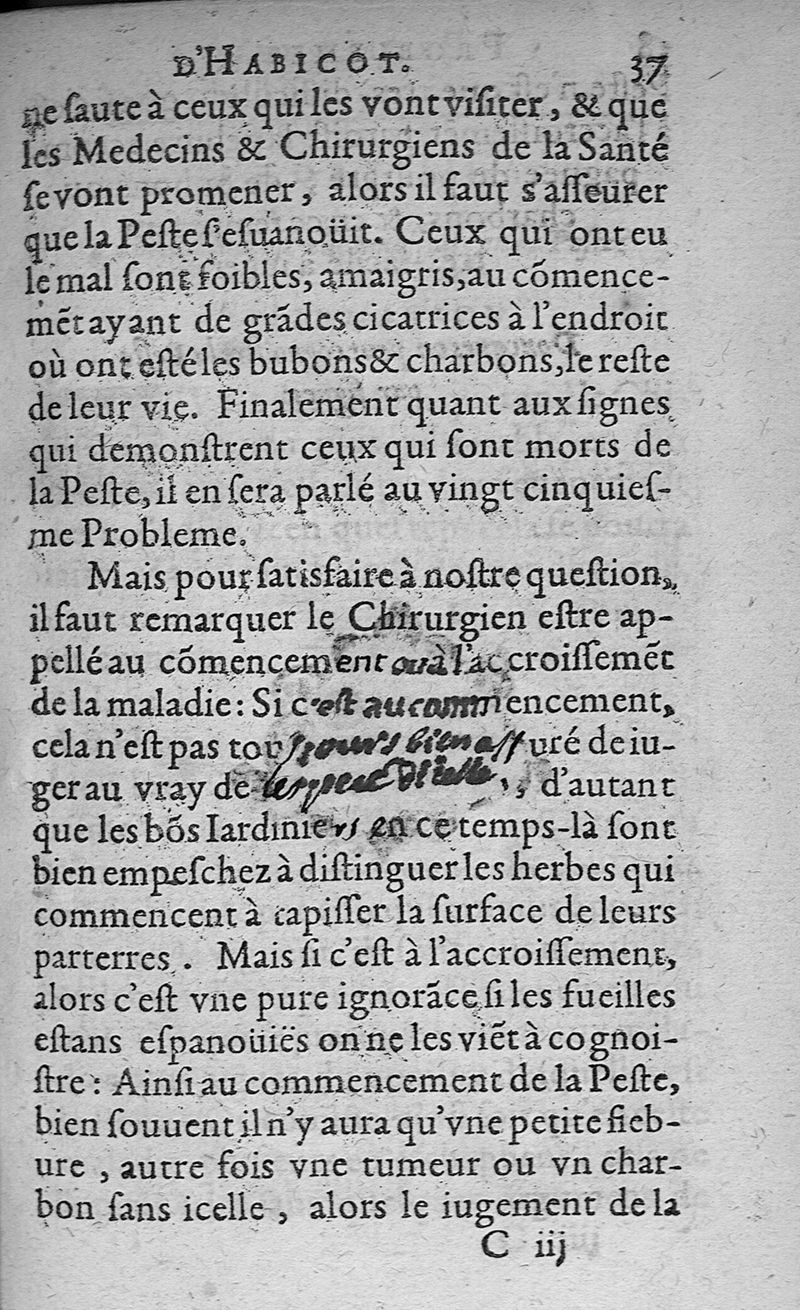 D'HABICOT. 37
ne ſaute à ceux qui les vont viſiter, & que
les Medecins & Chirurgiens de la Santé
ſe vont promener, alors il faut s'aſſeurer
que la Peſte s'eſuanoüit. Ceux qui ont eu
le mal ſont foibles, amaigris, au cõmence-
mẽt ayant de grãdes cicatrices à l'endroit
où ont eſté les bubons & charbons, le reſte
de leur vie. Finalement quant aux ſignes
qui demonſtrent ceux qui ſont morts de
la Peſte, il en ſera parlé au vingt cinquieſ-
me Probleme.
Mais pour ſatisfaire à noſtre queſtion,
il faut remarquer le Chirurgien eſtre ap-
pellé au cõmencement ou à l'accroiſſemẽt
de la maladie: Si c'eſt au commencement,
cela n'eſt pas touſiours bien aſſuré de iu-
ger au vray de , d'autant
que les bõs Iardiniers en ce temps-là ſont
bien empeſchez à diſtinguer les herbes qui
commencent à tapiſſer la ſurface de leurs
parterres. Mais ſi c'eſt à l'accroiſſement,
alors c'eſt vne pure ignorãce ſi les fueilles
eſtans eſpanoüiës on ne les viẽt à cognoi-
ſtre: Ainſi au commencement de la Peſte,
bien ſouuent il n'y aura qu'vne petite fieb-
ure, autre fois vne tumeur ou vn char-
bon ſans icelle, alors le iugement de la
C iij